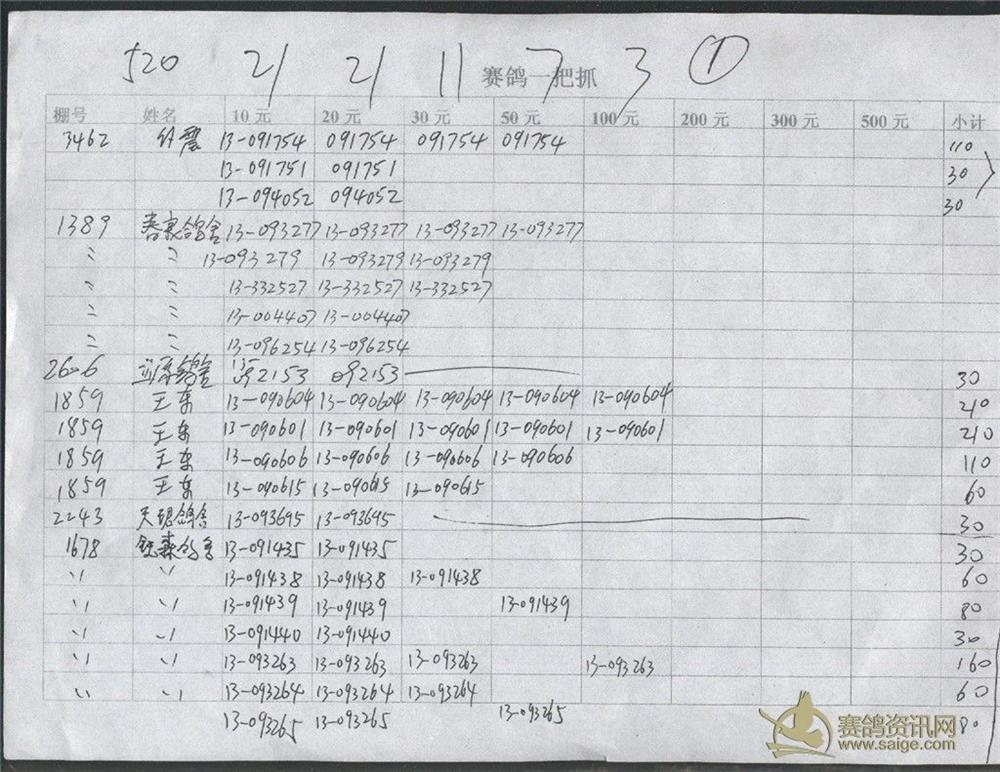 520 21 21 11 7 3 ①
赛鸽一把抓
棚号 姓名 10元 20元 30元 50元 100元 200元 300元 500元 小计
3462 震 13-091754 091754 091754 091754 110
13-091751 091751 30
13-094052 094052 30
1389 鸽舍 13-093277 13-093277 13-093277 13-093277
〃 〃 13-093279 13-093279 13-093279
〃 〃 13-332527 13-332527 13-332527
〃 〃 13-004407 13-004407
〃 〃 13-096254 13-096254
2606 鸽舍 13-092153 092153 30
1859 王东 13-090604 13-090604 13-090604 13-090604 13-090604 210
1859 王东 13-090601 13-090601 13-090601 13-090601 13-090601 210
1859 王东 13-090606 13-090606 13-090606 13-090606 110
1859 王东 13-090615 13-090615 13-090615 60
2243 天鸽舍 13-093695 13-093695 30
1678 森鸽舍 13-091435 13-091435 30
〃 〃 13-091438 13-091438 13-091438 60
〃 〃 13-091439 13-091439 13-091439 80
〃 〃 13-091440 13-091440 30
〃 〃 13-093263 13-093263 13-093263 13-093263 160
〃 〃 13-093264 13-093264 13-093264 60
13-093265 13-093265 13-093265 80
赛鸽资讯网
www.saige.com